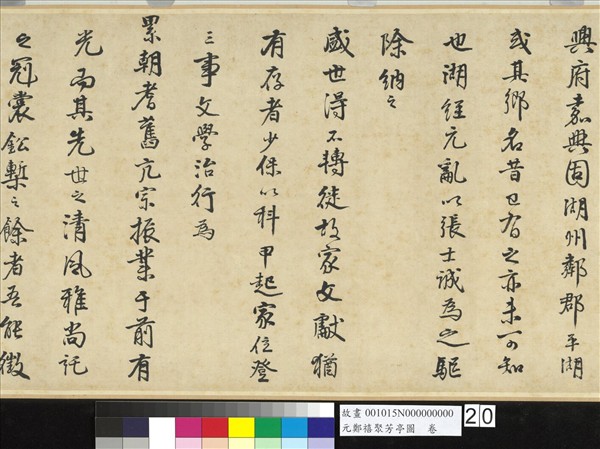 興府嘉興固湖州鄰郡平湖
或其鄉名昔已有之亦未可知
也湖經元亂以張士誠為之驅
除納之
盛世得不轉徙故家文獻猶
有存者少保以科甲起家位登
三事文學治行為
累朝耆舊亢宗振業于前有
光而其先世之清風雅尚託
之冠裳鉛槧之餘者吾能徵
故畫 001015N000000000
元鄭禧聚芳亭圖 卷
20